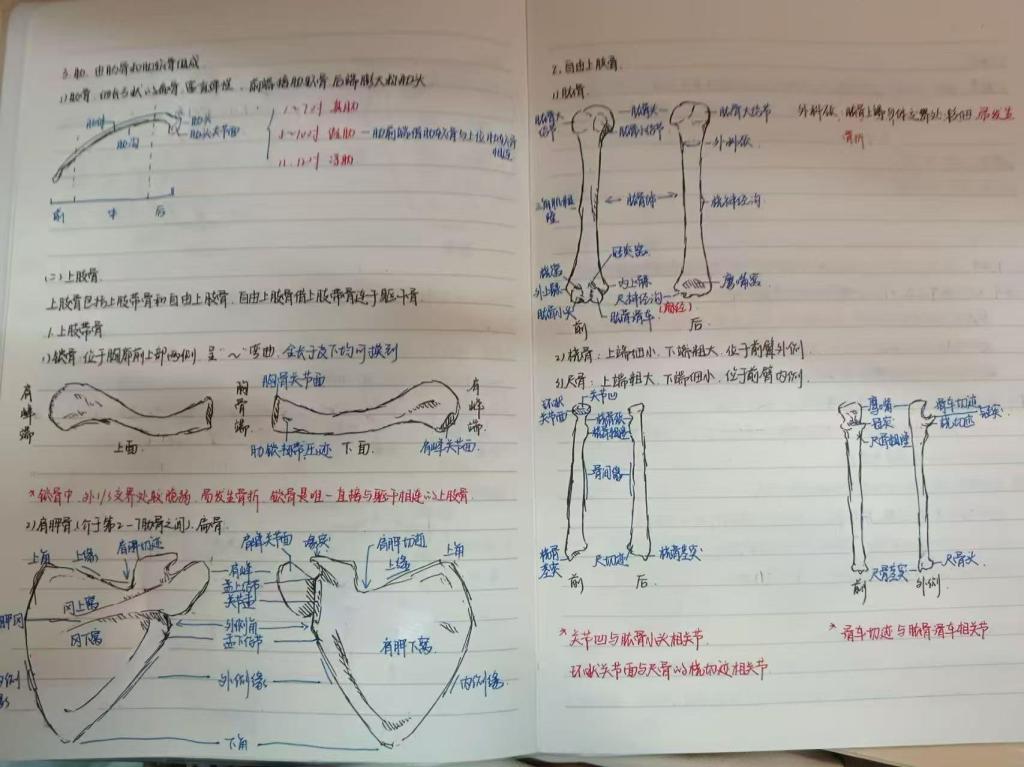 3.肋.由肋骨和肋软骨组成.
1)肋骨.
前端接肋软骨后端膨大称肋头
1~7对 真肋
8~10对 假肋—肋前端借肋软骨与上位肋软骨相连
11.12对 浮肋
肋头
肋头关节面
肋沟
前 中 后
(二)上肢骨.
上肢骨包括上肢带骨和自由上肢骨.自由上肢骨借上肢带骨连于躯干骨.
1.上肢带骨
1)锁骨.位于胸廓前上部两侧.呈"～"弯曲.全长于皮下均可摸到
肩峰端
上面.
胸骨端
胸骨关节面
肋锁韧带压迹
下面.
肩峰关节面.
肩峰端
*锁骨中、外1/3交界处较脆弱.易发生骨折.锁骨是唯一直接与躯干相连的上肢骨.
2)肩胛骨.(介于第2-7肋骨之间).扁骨.
上角
上缘
肩胛切迹
冈上窝
冈下窝
肩胛冈
内侧缘
肩峰关节面
喙突
肩胛切迹
上缘
上角
肩峰
盂上结节
关节盂
外侧角
盂下结节
外侧缘
肩胛下窝
内侧缘
下角
2.自由上肢骨.
1)肱骨.
肱骨大结节
肱骨头
肱骨小结节
肱骨大结节
外科颈
外科颈.肱骨上端与体交界处.较细.易发生骨折.
三角肌粗隆
肱骨体
桡神经沟
冠突窝
桡窝
外上髁
肱骨小头
内上髁
尺神经沟
肱骨滑车
鹰嘴窝
前 后.
2)桡骨:上端细小.下端粗大.位于前臂外侧.
3)尺骨:上端粗大.下端细小.位于前臂内侧.
环状关节面
关节凹
桡骨颈
桡骨粗隆
骨间缘
桡骨茎突
尺切迹
桡骨茎突
前 后
鹰嘴
冠突
尺骨粗隆
滑车切迹
桡切迹
冠突
尺骨茎突
尺骨头
前 外侧
*关节凹与肱骨小头相关节
环状关节面与尺骨的桡切迹相关节
*滑车切迹与肱骨滑车相关节